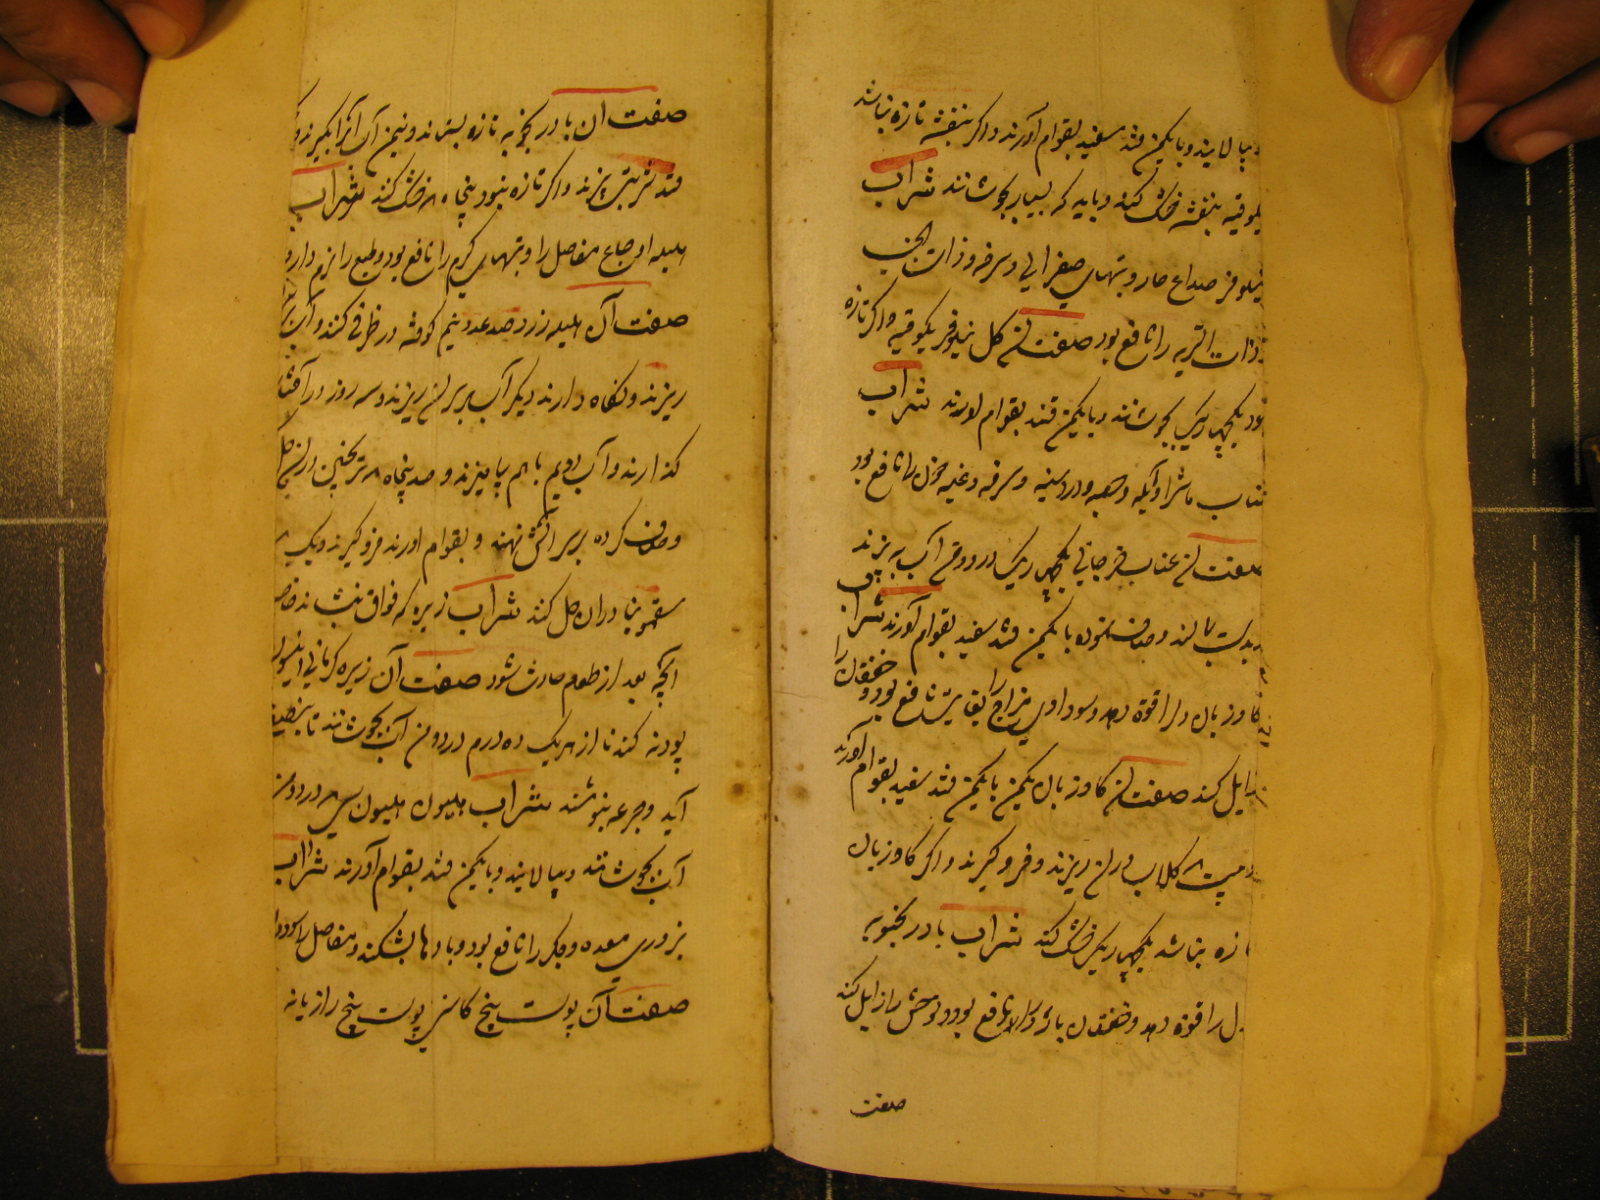 و بپالایند و با یکمن قند سفید بقوام آورند و اکر بنفشه تازه نباشد
یکوقیه بنفشه خشک کنند و باید که بسیار بجوشانند شراب
نیلوفر صداع حار و تبهای صفرایی و سرفه و ذات الجنب
و ذات الریه را نافع بود صفت آن کل نیلوفر یکوقیه و اکر تازه
بود یکچهاریک بجوشانند و با یکمن قند بقوام اورند شراب
عناب ماشرا و آبله و حصبه و درد سینه و سرفه و غلبه خون را نافع بود
صفت آن عناب جرجانی یکچهاریک در دو من آب به پزند
و بدست بمالند و صاف نموده با یکمن قند سفید بقوام آورند شراب
کاو زبان دل را قوة دهد و سوداوی مزاج را بغایت نافع بود و خفقان را
زایل کند صفت آن کاو زبان یکمن با یکمن قند سفید بقوام آورند
و بیست م کلاب در آن ریزند و فرو کیرند و اکر کاو زبان
تازه نباشد یکچهاریک خشک کنند شراب بادرنجبویه
دل را قوة دهد و خفقان بارد را نافع بود و توحش را زایل کند
صفت
صفت ان بادرنجبویه تازه بستانند و نیمن آب آنرا بکیرند و
قند شربت پزند و اکر تازه نبود پنجاه م خشک کنند شراب
هلیله اوجاع مفاصل را و تبهای کرم را نافع بود و طبع را نرم دارد
صفت آن هلیله زرد صد عدد نیم کوفته در ظرفی کنند و آب بر
ریزند و نکاه دارند دیکر آب بر بر آن ریزند و سه روز در آفتاب
کذارند و آب دویم باهم بیامیزند و صد پنجاه م ترنجبین در آن حل
و صاف کرده بر سر آتش نهند و بقوام اورند فرو کیرند و یک
سقمونیا در ان حل کنند شراب زیره که فواق بنشاند خاصه
آنچه بعد از طعام حادث شود صفت آن زیره کرمانی انیسون
پودنه کندنا از هریک ده درم در دو من آب بجوشانند تا بنصف
آید و جرعه بنوشند شراب هلیون هلیون سی م در دو من
آب بجوشانند و بپالایند و با یکمن قند بقوام آورند شراب
بزوری معده و جکر را نافع بود و بادها بشکند و مفاصل را سود دارد
صفت آن پوست بیخ کاسنی پوست بیخ رازیانه